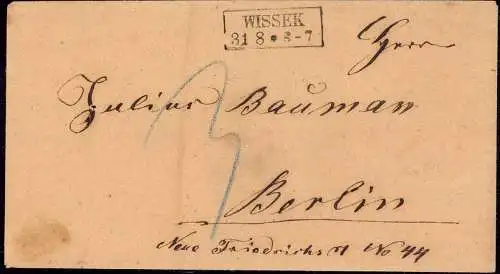 WISSEK
31 8 * 8-7
Herr
Julius Bauman
3
Berlin
Neue Friedrichs st No 44